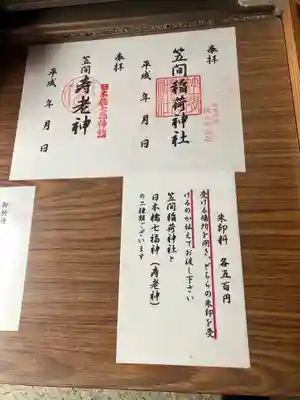 奉拝
笠間稲荷神社
平成　年　月　日
奉拝
日本橋七福神詣
笠間
寿老神
平成　年　月　日
朱印料　各五百円
受ける場所を開き、どちらの朱印を受
けるのか伝えてお渡し下さい
笠間稲荷神社と
日本橋七福神（寿老神）
の二種類ございます